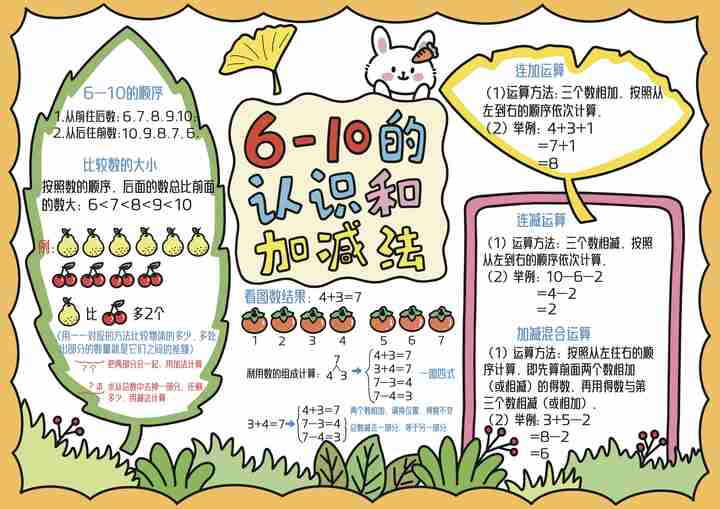 6-10的
认识和
加减法
6—10的顺序
1.从前往后数:6.7.8.9.10;
2.从后往前数:10.9.8.7.6;
比较数的大小
按照数的顺序，后面的数总比前面
的数大: 6<7<8<9<10
例:
比 多2个
(用一一对应的方法比较物体的多少，多处
出部分的数量就是它们之间的差额)
? ? 把两部分合一起，用加法计算
多少，用减法计算
看图数结果: 4+3=7
1 2 3 4 5 6 7
利用数的组成计算:
7
4 3
4+3=7
3+4=7
7-3=4
7-4=3
一图四式
3+4=7
4+3=7
7-3=4
7-4=3
两个数相加，调换位置，得数不变
总数减去一部分，等于另一部分
连加运算
(1)运算方法: 三个数相加，按照从
左到右的顺序依次计算。
(2) 举例: 4+3+1
=7+1
=8
连减运算
(1) 运算方法: 三个数相减，按照
从左到右的顺序依次计算。
(2) 举例: 10-6-2
=4-2
=2
加减混合运算
(1) 运算方法: 按照从左往右的顺
序计算，即先算前面两个数相加
(或相减)的得数，再用得数与第
三个数相减(或相加)。
(2) 举例: 3+5-2
=8-2
=6